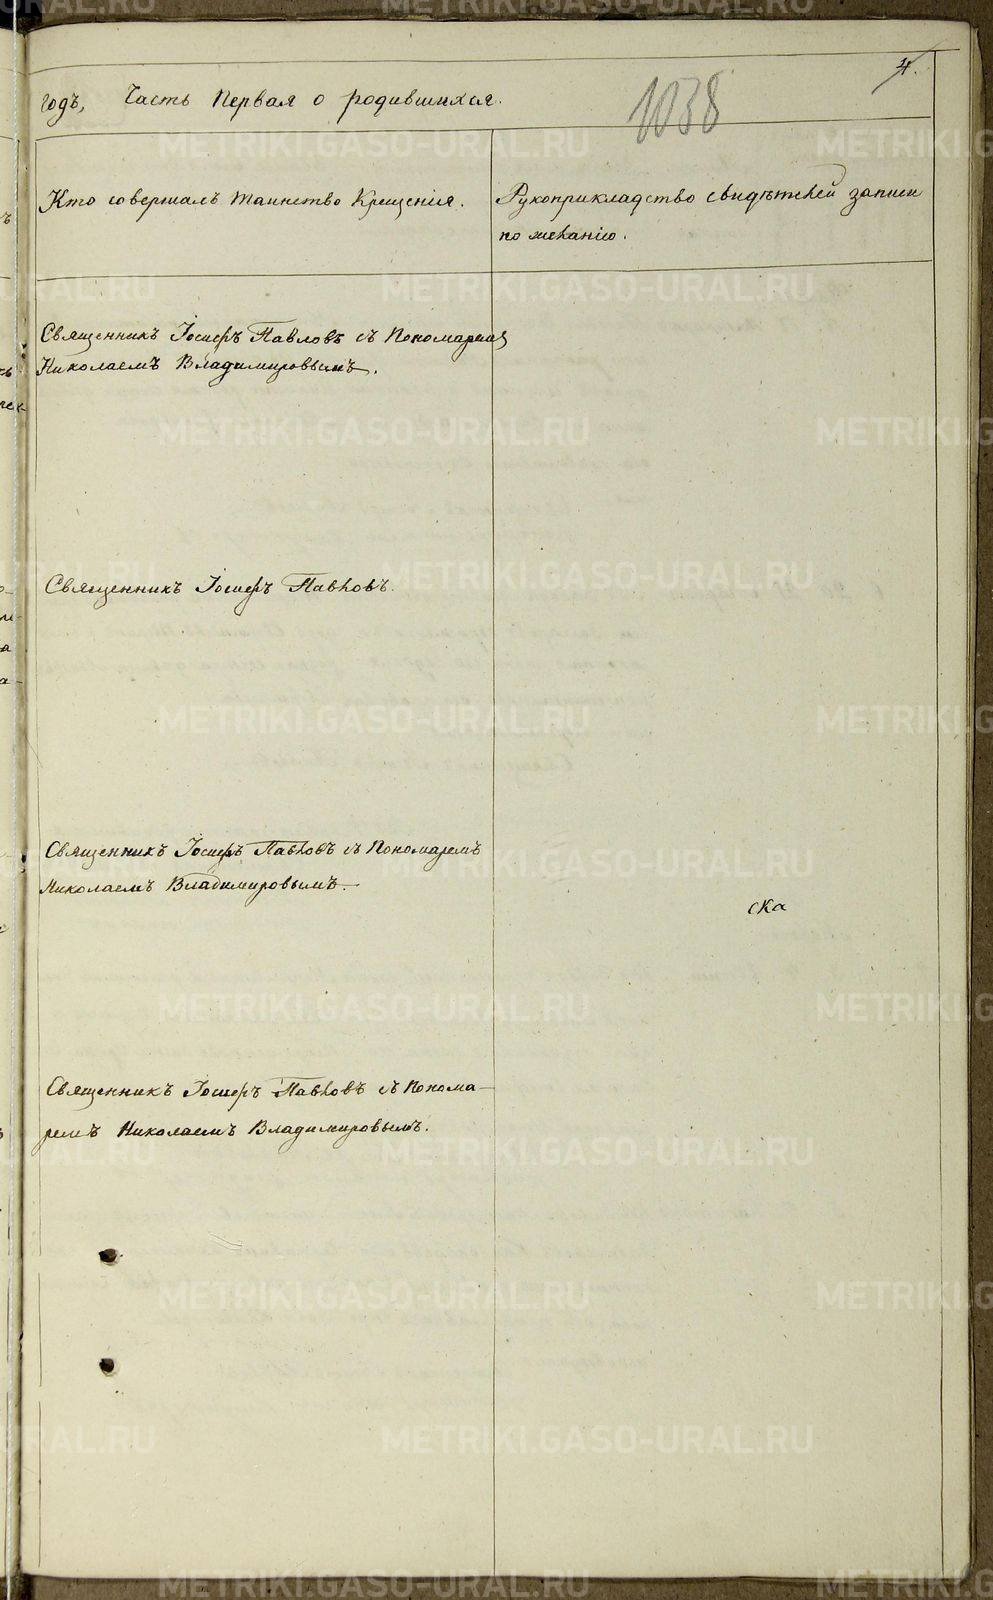 4.
годъ, Часть Первая о родившихся.
1038
Кто совершалъ таинство Крещенія.
Рукоприкладство свидѣтелей записи
по желанію.
Священникъ Іосифъ Павловъ съ Пономаремъ
Николаемъ Владимировымъ.
Священникъ Іосифъ Павловъ.
Священникъ Іосифъ Павловъ съ Пономаремъ
Николаемъ Владимировымъ.
ска
Священникъ Іосифъ Павловъ съ Понома-
ремъ Николаемъ Владимировымъ.
METRIKI.GASO-URAL.RU